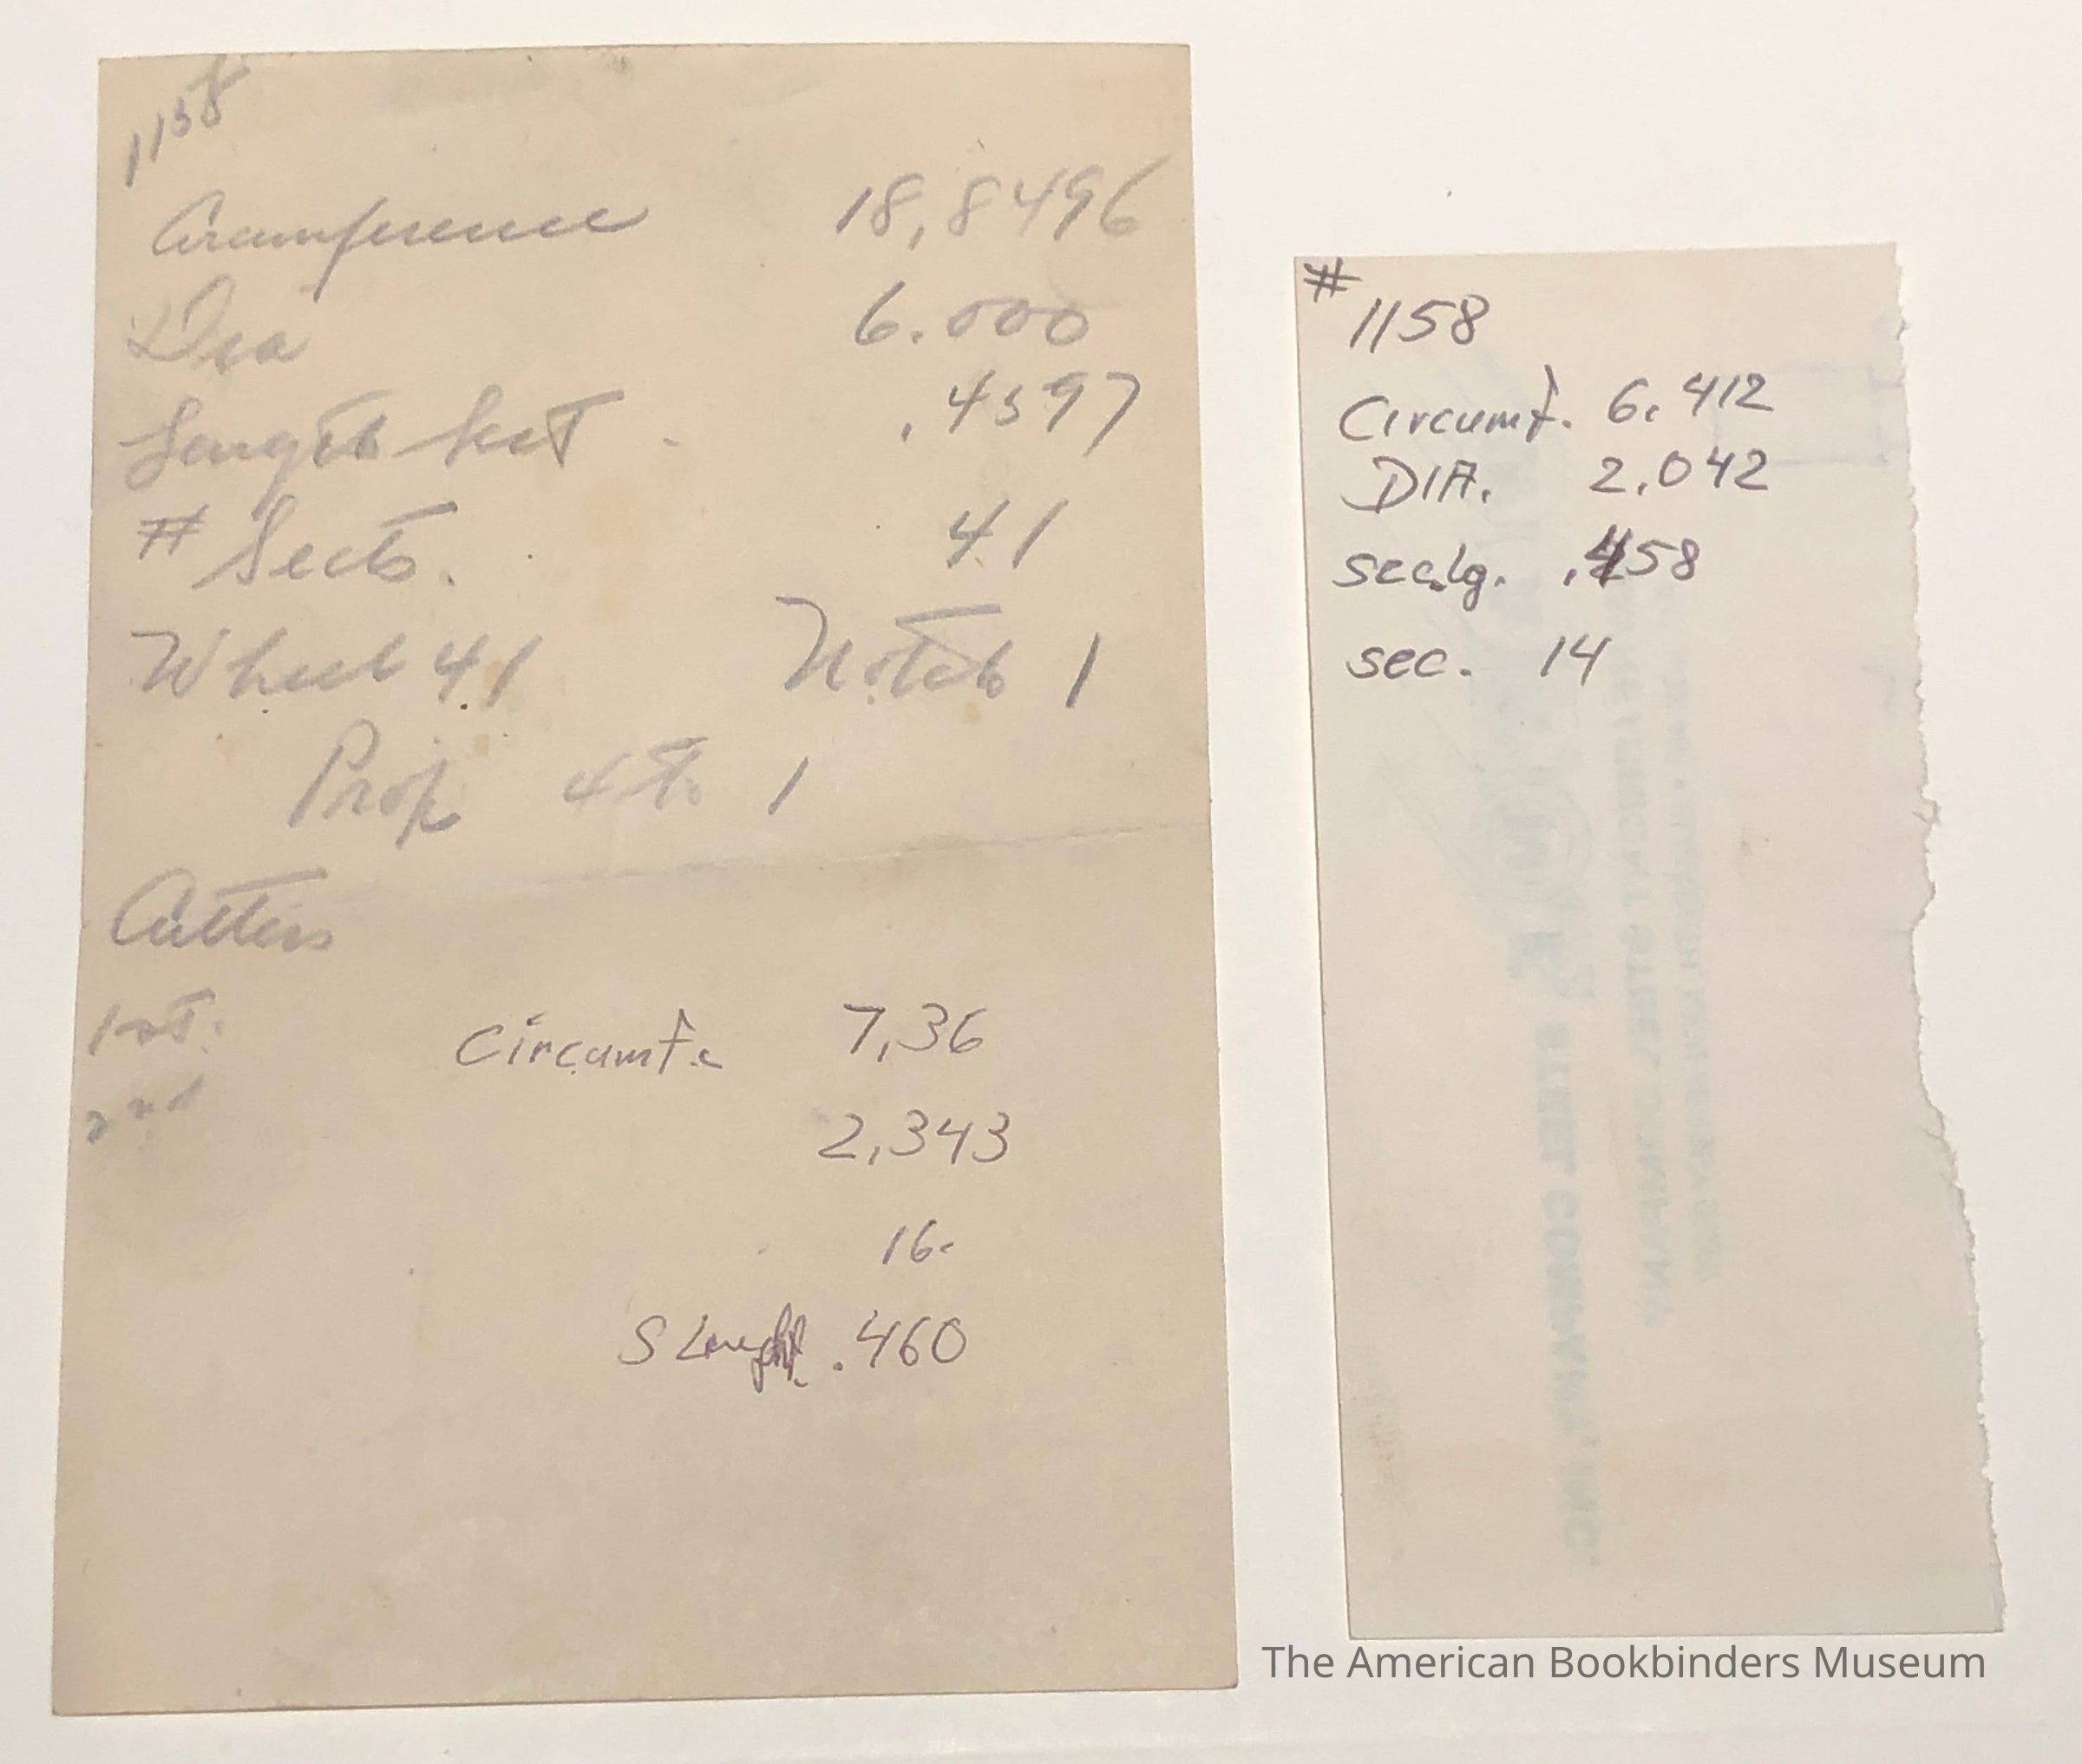 1158
Circumference 18,8496
Dia 6.000
Length Sect - .4597
# Sects. 41
Wheel 41 Notch 1
Prop 4 T. 1
Cutters
1st.
2nd
Circumf. 7,36
2,343
16.
S Lenght. .460
#
1158
Circumf. 6.412
DIA. 2.042
sec.lg. .458
sec. 14
STEEL COMPANY, INC.
The American Bookbinders Museum